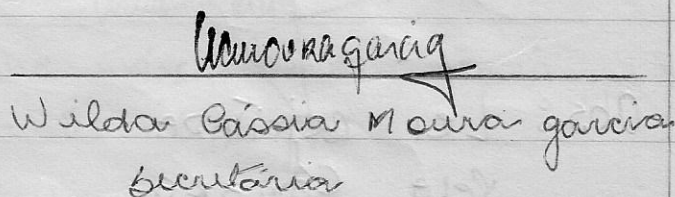 Wcmouragarcia
Wilda Cássia Moura garcia
secretária